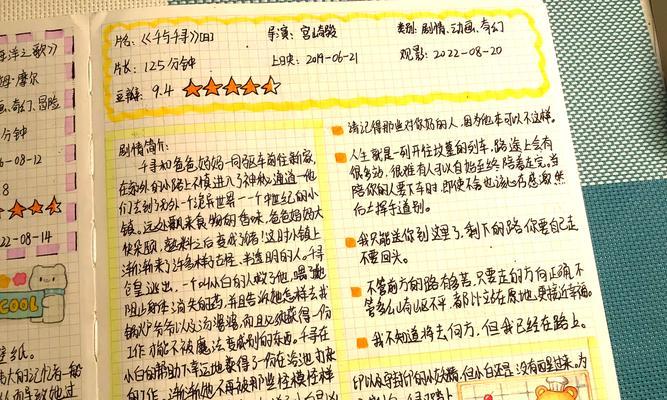 海洋之歌》
姆·摩尔
奇幻、冒险
分钟
6-08-12
8
22-08-14
COOL
片名:《千与千寻》[日]
导演: 宫崎骏
类别: 剧情、动画、奇幻
片长: 125分钟
上映: 2019-06-21
观影: 2022-08-20
豆瓣: 9.4
剧情简介:
千寻和爸爸妈妈一同驱车前往新家,
在郊外的小路上不慎进入了神秘通道一他
们去到了另外一个诡异世界一一个中世纪的小
镇。远处飘来食物的香味,爸爸妈妈大
快朵颐,孰料之后变成了猪!这时小镇上
渐渐来了许多样子古怪、半透明的人。千寻
仓皇逃出,一个叫小白的人救了他,喂了她
阻止身体消失的药,并且告诉她怎样去找
锅炉爷爷以及汤婆婆,而且必须获得一份
工作才能不被魔法变成别的东西。千寻在
小白的帮助下幸运地获得了一份在浴池打杂
的工作。渐渐她不再被那些怪模怪样
请记得那些对你好的人,因为他本可以不这样。
人生就是一列开往坟墓的列车,路途上会有
很多站,很难有人可以自始至终陪着走完。当
陪你的人要下车时,即使不舍也该心存感激,然
后挥手道别。
我只能送你到这里了,剩下的路你要自己走
不要回头。
不管前方的路有多苦,只要走的方向正确,不
管多么崎岖不平,都比站在原地更接近幸福。
我不知道将去何方,但我已经在路上。